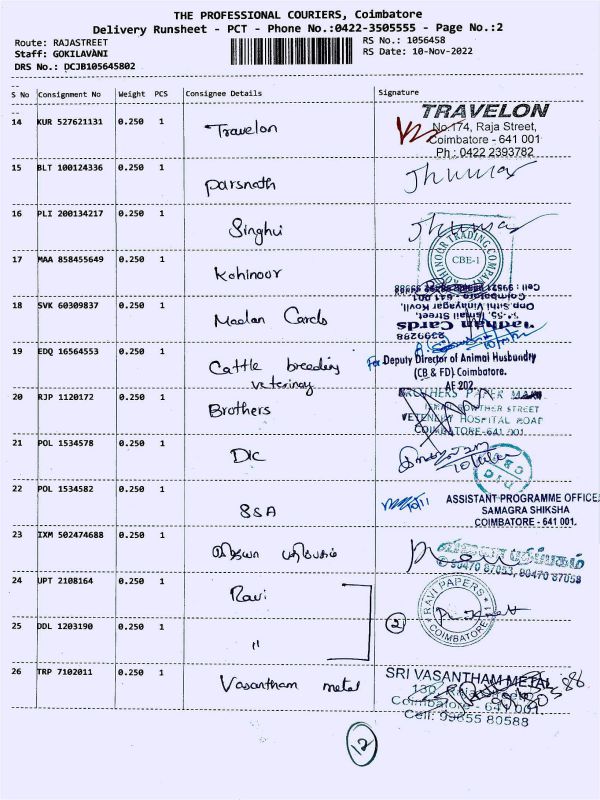 THE PROFESSIONAL COURIERS, Coimbatore
Delivery Runsheet - PCT - Phone No.:0422-3505555 - Page No.:2
Route: RAJASTREET
RS No.: 1056458
Staff: GOKILAVANI
RS Date: 10-Nov-2022
DRS No.: DCJB105645802
S No Consignment No Weight PCS Consignee Details Signature
14 KUR 527621131 0.250 1 Travelon
TRAVELON
No.174, Raja Street,
Coimbatore - 641 001
Ph : 0422 2393782
15 BLT 100124336 0.250 1 Parsnath
16 PLI 200134217 0.250 1 Singhvi
17 MAA 858455649 0.250 1 Kohinoor
KOHINOOR TRADING COMPANY
CBE-1
18 SVK 60309837 0.250 1 Madan Cards
Madhan Cards
Opp. Sithi Vinayagar Kovil,
Coimbatore - 641 001
19 EDQ 16564553 0.250 1 Cattle breeding
veterinary
For Deputy Director of Animal Husbandry
(CB & FD) Coimbatore.
20 RJP 1120172 0.250 1 Brothers
BROTHERS PAPER MART
STREET
HOSPITAL ROAD
COIMBATORE-641 001
21 POL 1534578 0.250 1 DIC
22 POL 1534582 0.250 1 SSA
10/11
ASSISTANT PROGRAMME OFFICE
SAMAGRA SHIKSHA
COIMBATORE - 641 001.
23 IXM 502474688 0.250 1 விஜயா பதிப்பகம்
விஜயா பதிப்பகம்
90470 87053, 90470 87058
24 UPT 2108164 0.250 1 Ravi
RAVI PAPERS
COIMBATORE-1
25 DDL 1203190 0.250 1 "
2
26 TRP 7102011 0.250 1 Vasantham metal
SRI VASANTHAM METAL
Coimbatore - 641 001
Cell: 99655 80588
12